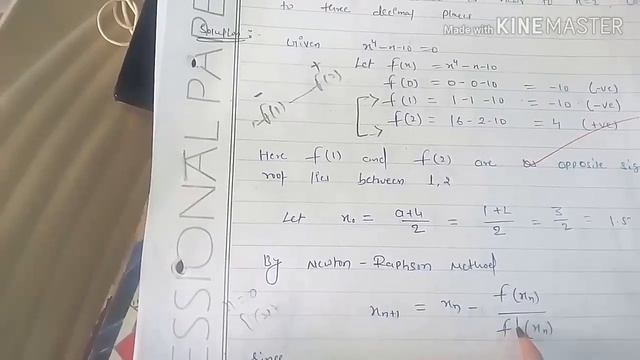 to three decimal places
Made with KINEMASTER
Solution:-
Given x⁴-x-10=0
Let f(x) = x⁴-x-10
f(0) = 0-0-10 = -10 (-ve)
f(1) = 1-1-10 = -10 (-ve)
f(2) = 16-2-10 = 4 (+ve)
- f(1) + f(2)
Here f(1) and f(2) are opposite sig
root lies between 1,2
Let x₀ = a+b/2 = 1+2/2 = 3/2 = 1.5
By Newton-Raphson Method
xₙ₊₁ = xₙ - f(xₙ)/f'(xₙ)
n=0
since
ESSIONAL PAPE